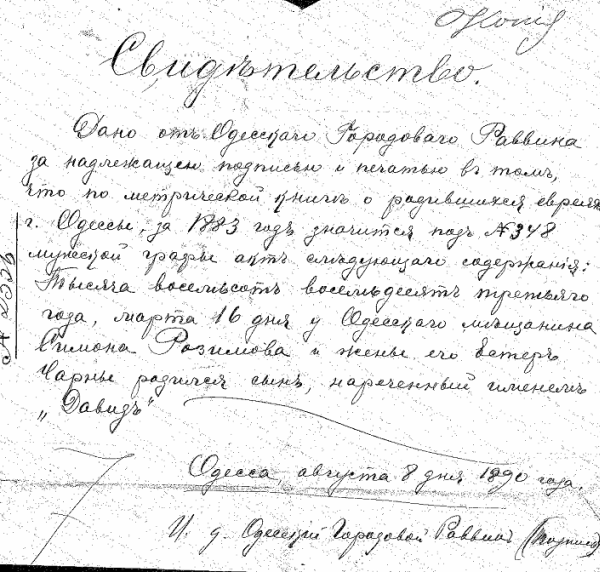 Копія
Свидѣтельство.
Дано отъ Одесскаго Городоваго Раввина
за надлежащею подписью и печатью въ томъ,
что по метрической книгѣ о родившихся евреяхъ
г. Одессы, за 1883 годъ значится подъ №348
мужской графы актъ слѣдующаго содержанія:
Тысяча восемьсотъ восемьдесятъ третьяго
года, марта 16 дня у Одесскаго мѣщанина
Симона Розимова и жены его Эстеръ
Чарны родился сынъ, нареченный именемъ
„Давидъ“
Одесса, августа 8 дня 1890 года.
И. д. Одесскій Городовой Раввинъ (подпись)